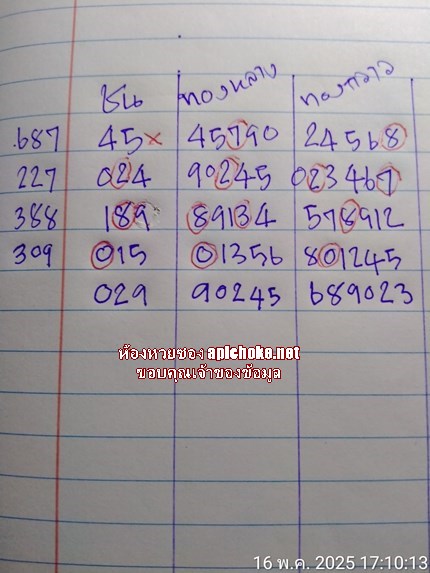 ชน ทองหลาง ทองกวาว
.687 45× 45790 24568
227 024 90245 023467
388 189 89134 578912
309 015 01356 801245
029 90245 689023
ห้องหวยซอง apichoke.net
ขอบคุณเจ้าของข้อมูล
16 พ.ค. 2025 17:10:13